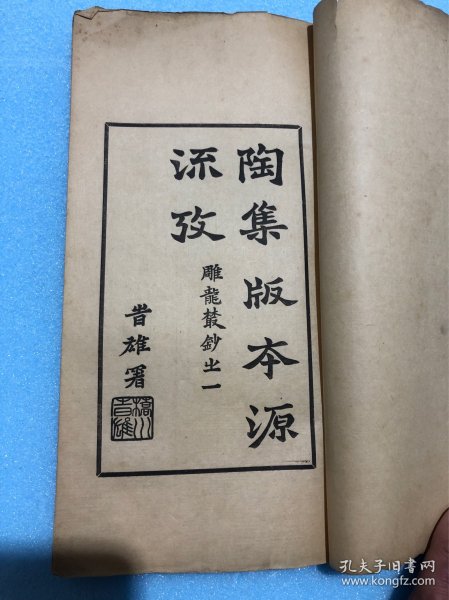 陶集版本源
流攷
雕龍叢鈔之一
昔雄署
橋川
吉雄
孔夫子旧书网
www.kongfz.com